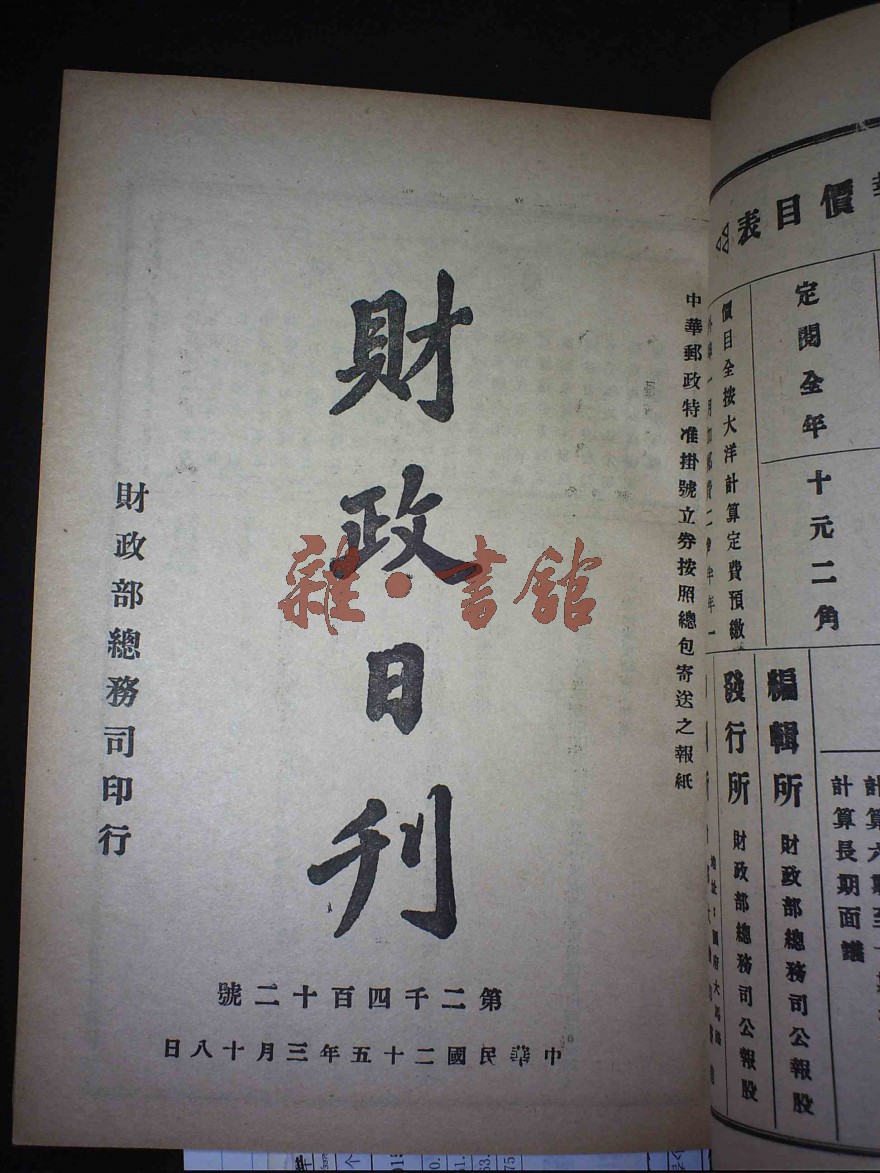 中華郵政特准掛號立券按照總包寄送之報紙
財政日刊
財政部總務司印行
第二千四百十二號
中華民國二十五年三月十八日
雜·書館
價目表
定閱全年
十元二角
價目全按大洋計算定費預繳
編輯所 財政部總務司公報股
發行所 財政部總務司公報股
計算長期面議